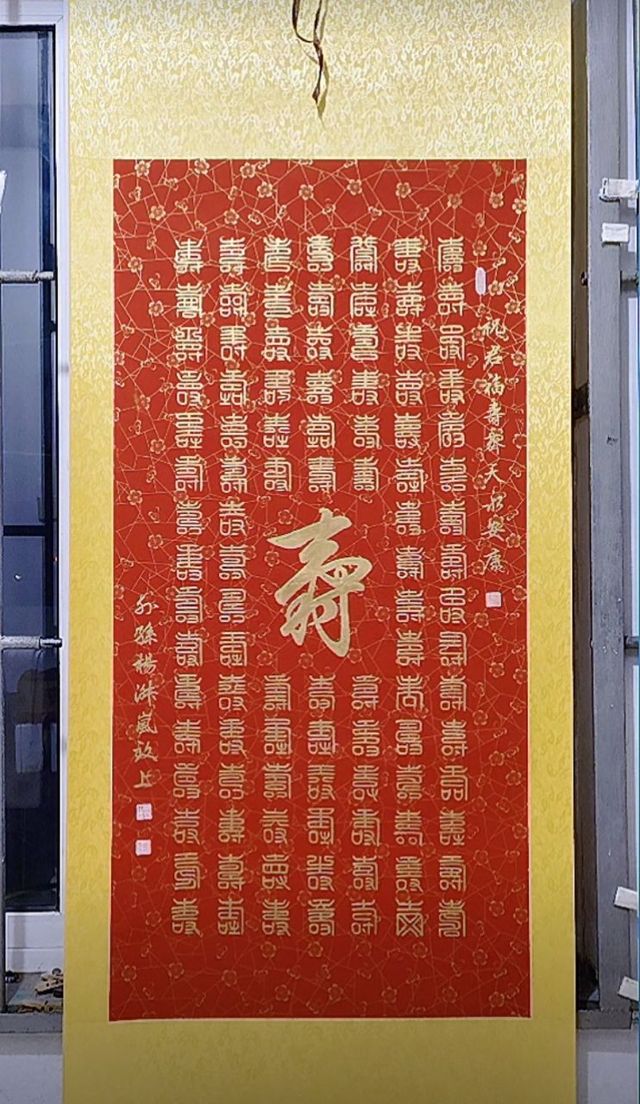 祝君福壽齊天永安康
壽壽壽壽壽壽壽壽壽壽壽壽壽壽壽壽
壽壽壽壽壽壽壽壽壽壽壽壽壽壽壽壽
壽壽壽壽壽壽
壽壽壽壽壽壽
壽壽壽壽壽壽
壽
壽壽壽壽壽壽
壽壽壽壽壽壽
壽壽壽壽壽壽
壽壽壽壽壽壽壽壽壽壽壽壽壽壽壽壽
壽壽壽壽壽壽壽壽壽壽壽壽壽壽壽壽
外孫楊嵐敬上